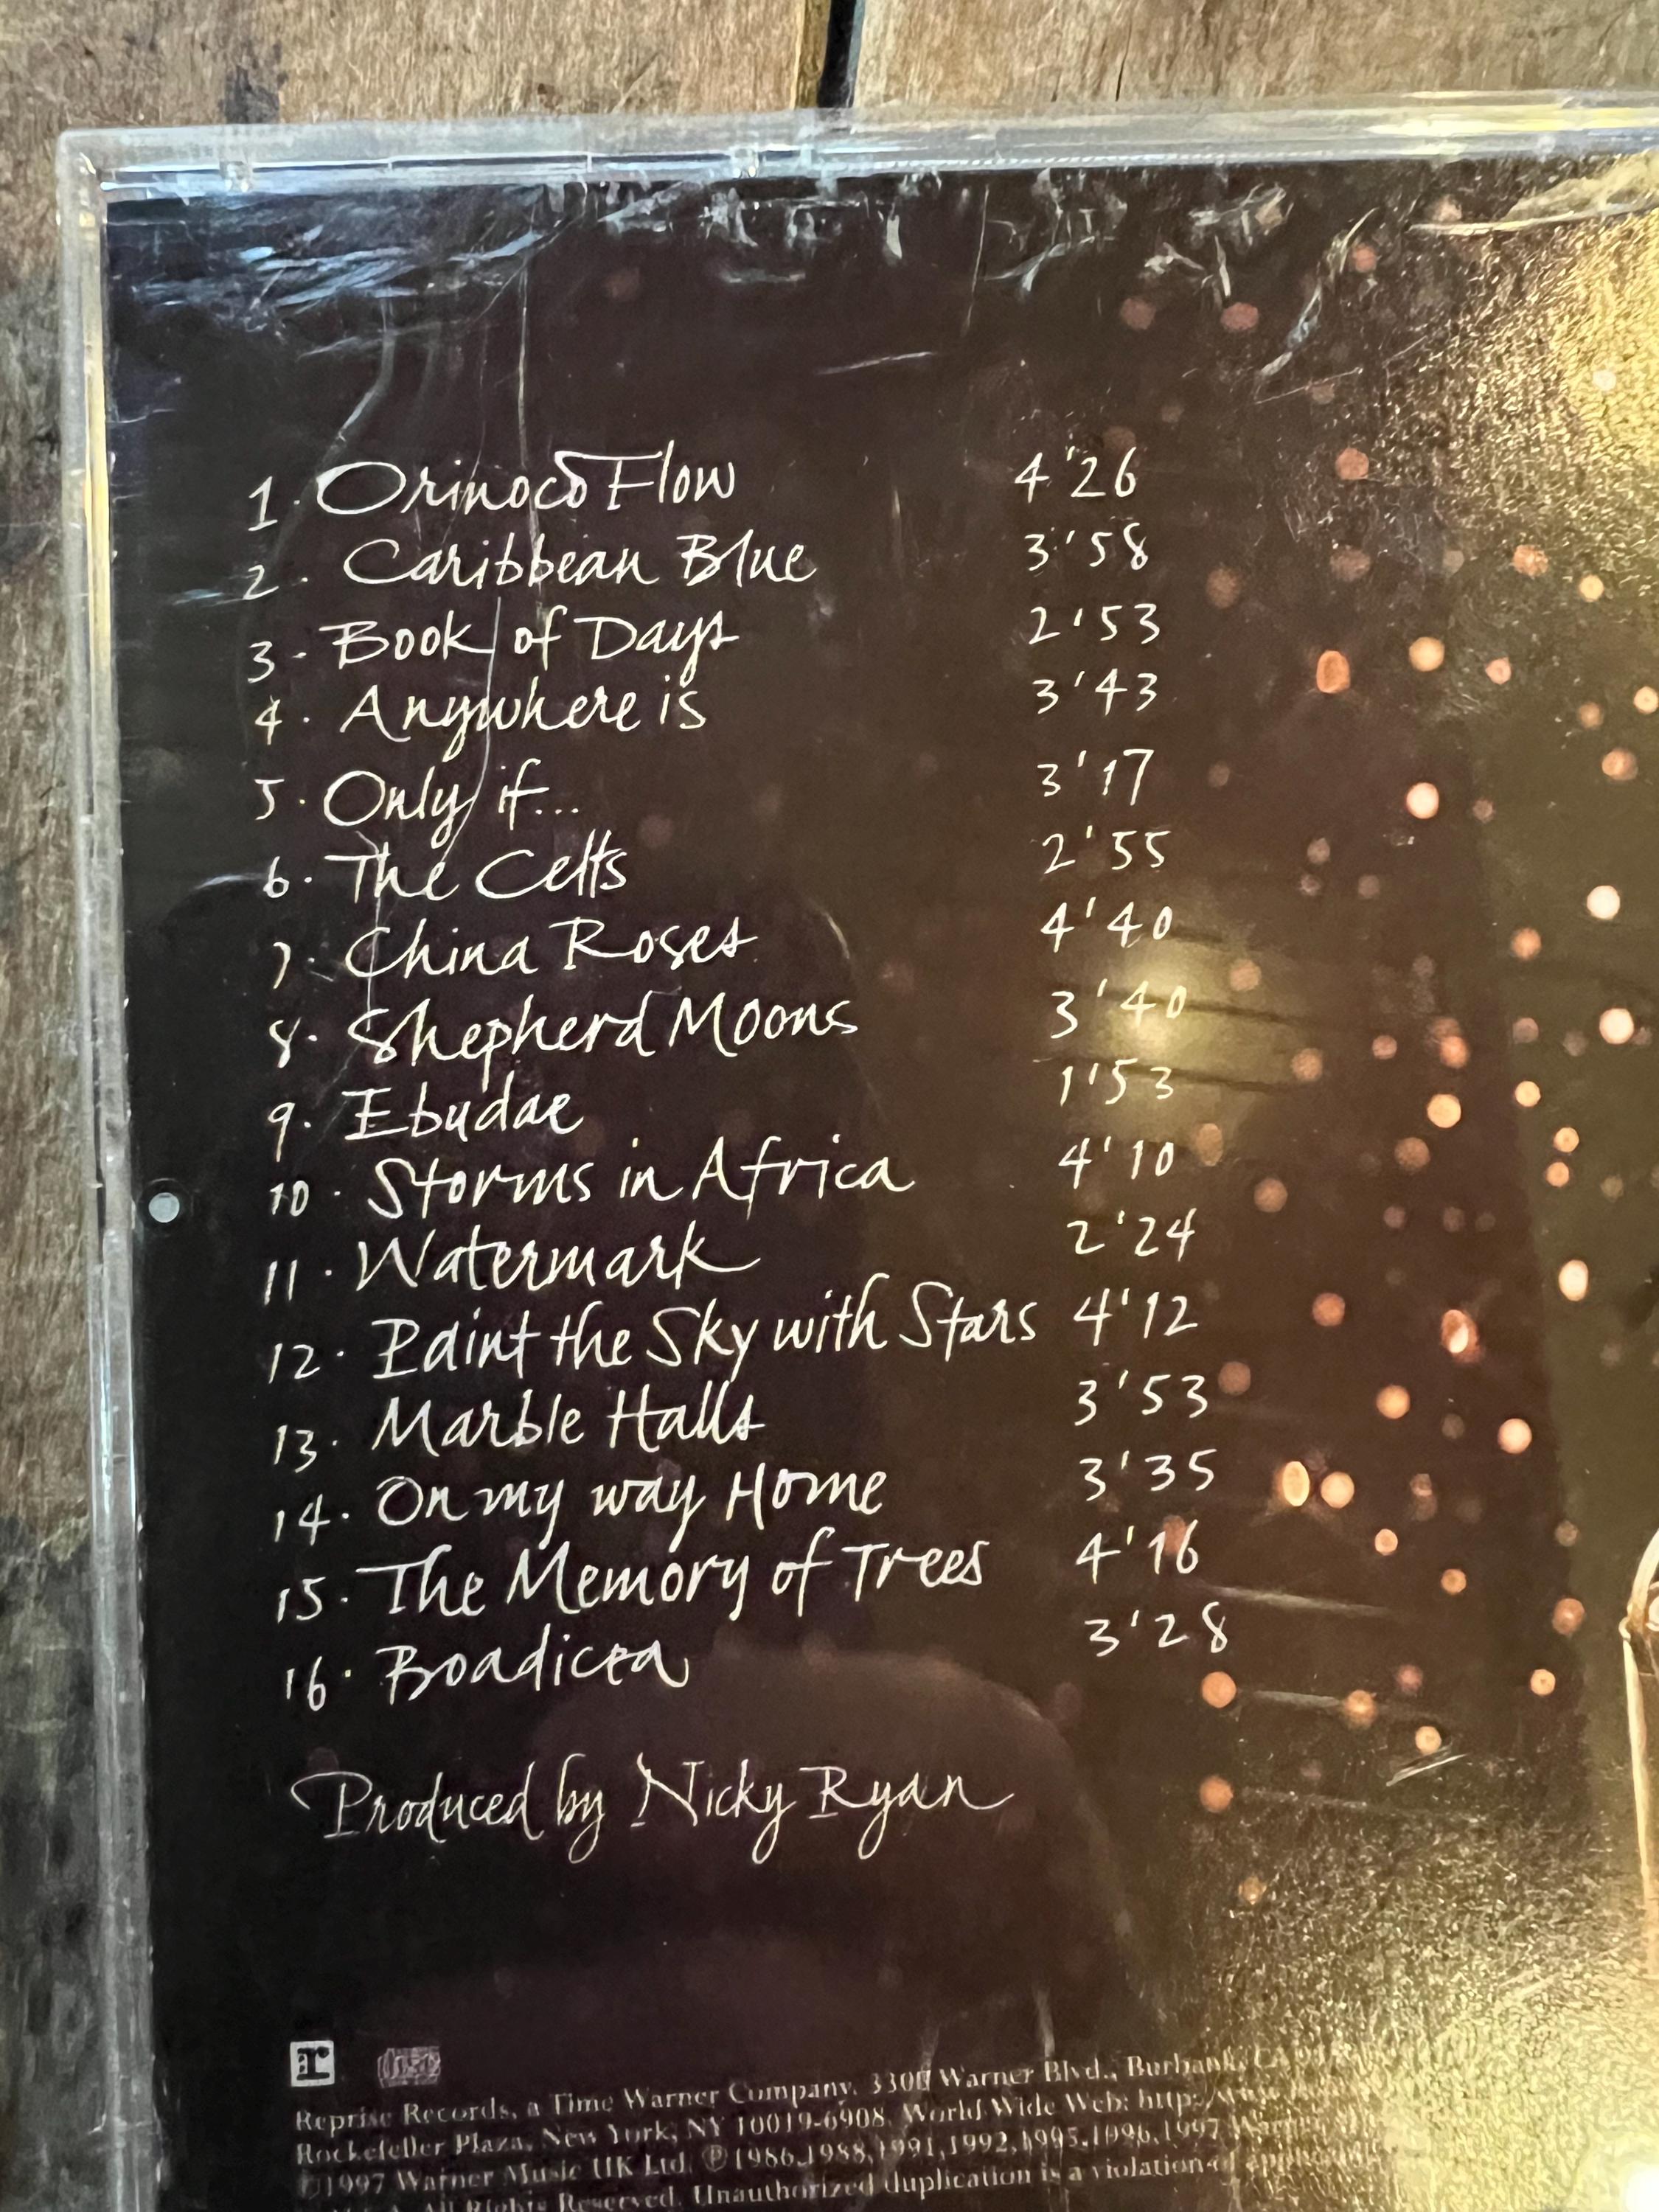 1. Orinoco Flow 4'26
2. Caribbean Blue 3'58
3. Book of Days 2'53
4. Anywhere is 3'43
5. Only if... 3'17
6. The Celts 2'55
7. China Roses 4'40
8. Shepherd Moons 3'40
9. Ebudae 1'53
10. Storms in Africa 4'10
11. Watermark 2'24
12. Paint the Sky with Stars 4'12
13. Marble Halls 3'53
14. On my way Home 3'35
15. The Memory of Trees 4'16
16. Boadicea 3'28
Produced by Nicky Ryan
r disc
Reprise Records, a Time Warner Company, 3300 Warner Blvd., Burbank, CA
Rockefeller Plaza, New York, NY 10019-6908. World Wide Web: http:
©1997 Warner Music UK Ltd. ℗1986,1988,1991,1992,1995,1996,1997 Warner
All Rights Reserved. Unauthorized duplication is a violation of